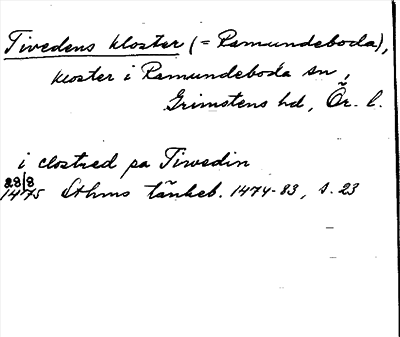 Tivedens kloster (= Ramundeboda),
kloster i Ramundeboda sn,
Grimstens hd, Ör. l.
i clostred pa Tiwedin
28/8
1475 Sthms tänkeb. 1474-83, s. 23